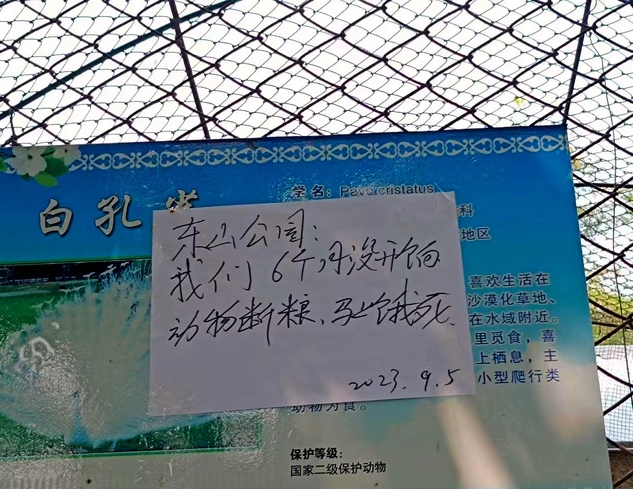 白孔雀
学名：Pavo cristatus
科
地区
东山公园：
我们6个月没开饷
动物断粮、马上饿死.
2023.9.5
喜欢生活在
沙漠化草地、
在水域附近。
里觅食，喜
上栖息，主
小型爬行类
动物为食。
保护等级：
国家二级保护动物